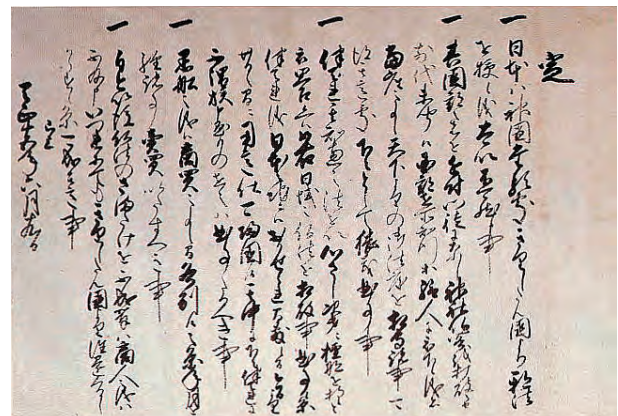 定
一 日本ハ神国たる処きりしたん国より邪法
を授候儀太以不可然候事
一 其国郡之者を近付門徒になし神社仏閣を打破之由
前代未聞候国郡在所知行等給人に被下候儀は
当座之事候天下よりの御法度を相守諸事可
得其意処下々として猥義曲事
一 伴天連其知恵之法を以心さし次第に檀那を持候と
被思召候へは如右日域之仏法を相破事曲事候条
伴天連儀日本之地ニハおかせられ間敷候間今日より
廿日之間に用意仕可帰国候其中に下々伴天連に
不謂族申懸もの在之ハ曲事たるへき事
一 黒船之儀ハ商買之事候間各別候之条年月を
経諸事売買いたすへき事
一 自今以後仏法のさまたけを不成輩ハ商人之儀ハ
不及申いつれにてもきりしたん国より往還
くるしからす候条可成其意事
已上
天正十五年六月十九日